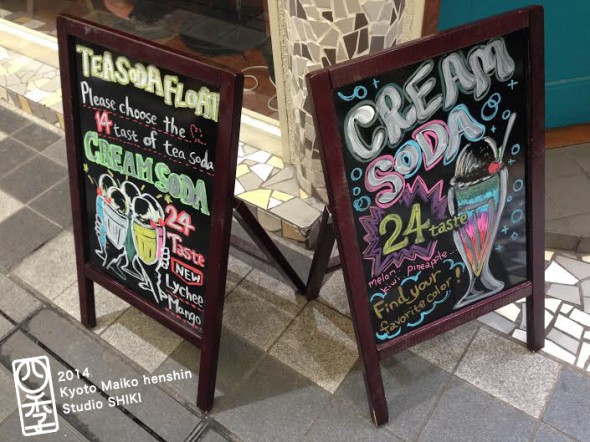 TEA SODA FLOAT
Please choose the
14 tast of tea soda
CREAM SODA
24
Taste
NEW
Lychee
Mango
CREAM
SODA
24 taste
Melon Pineapple
Kiwi
Find your
favorite color!
2014
Kyoto Maiko henshin
Studio SHIKI